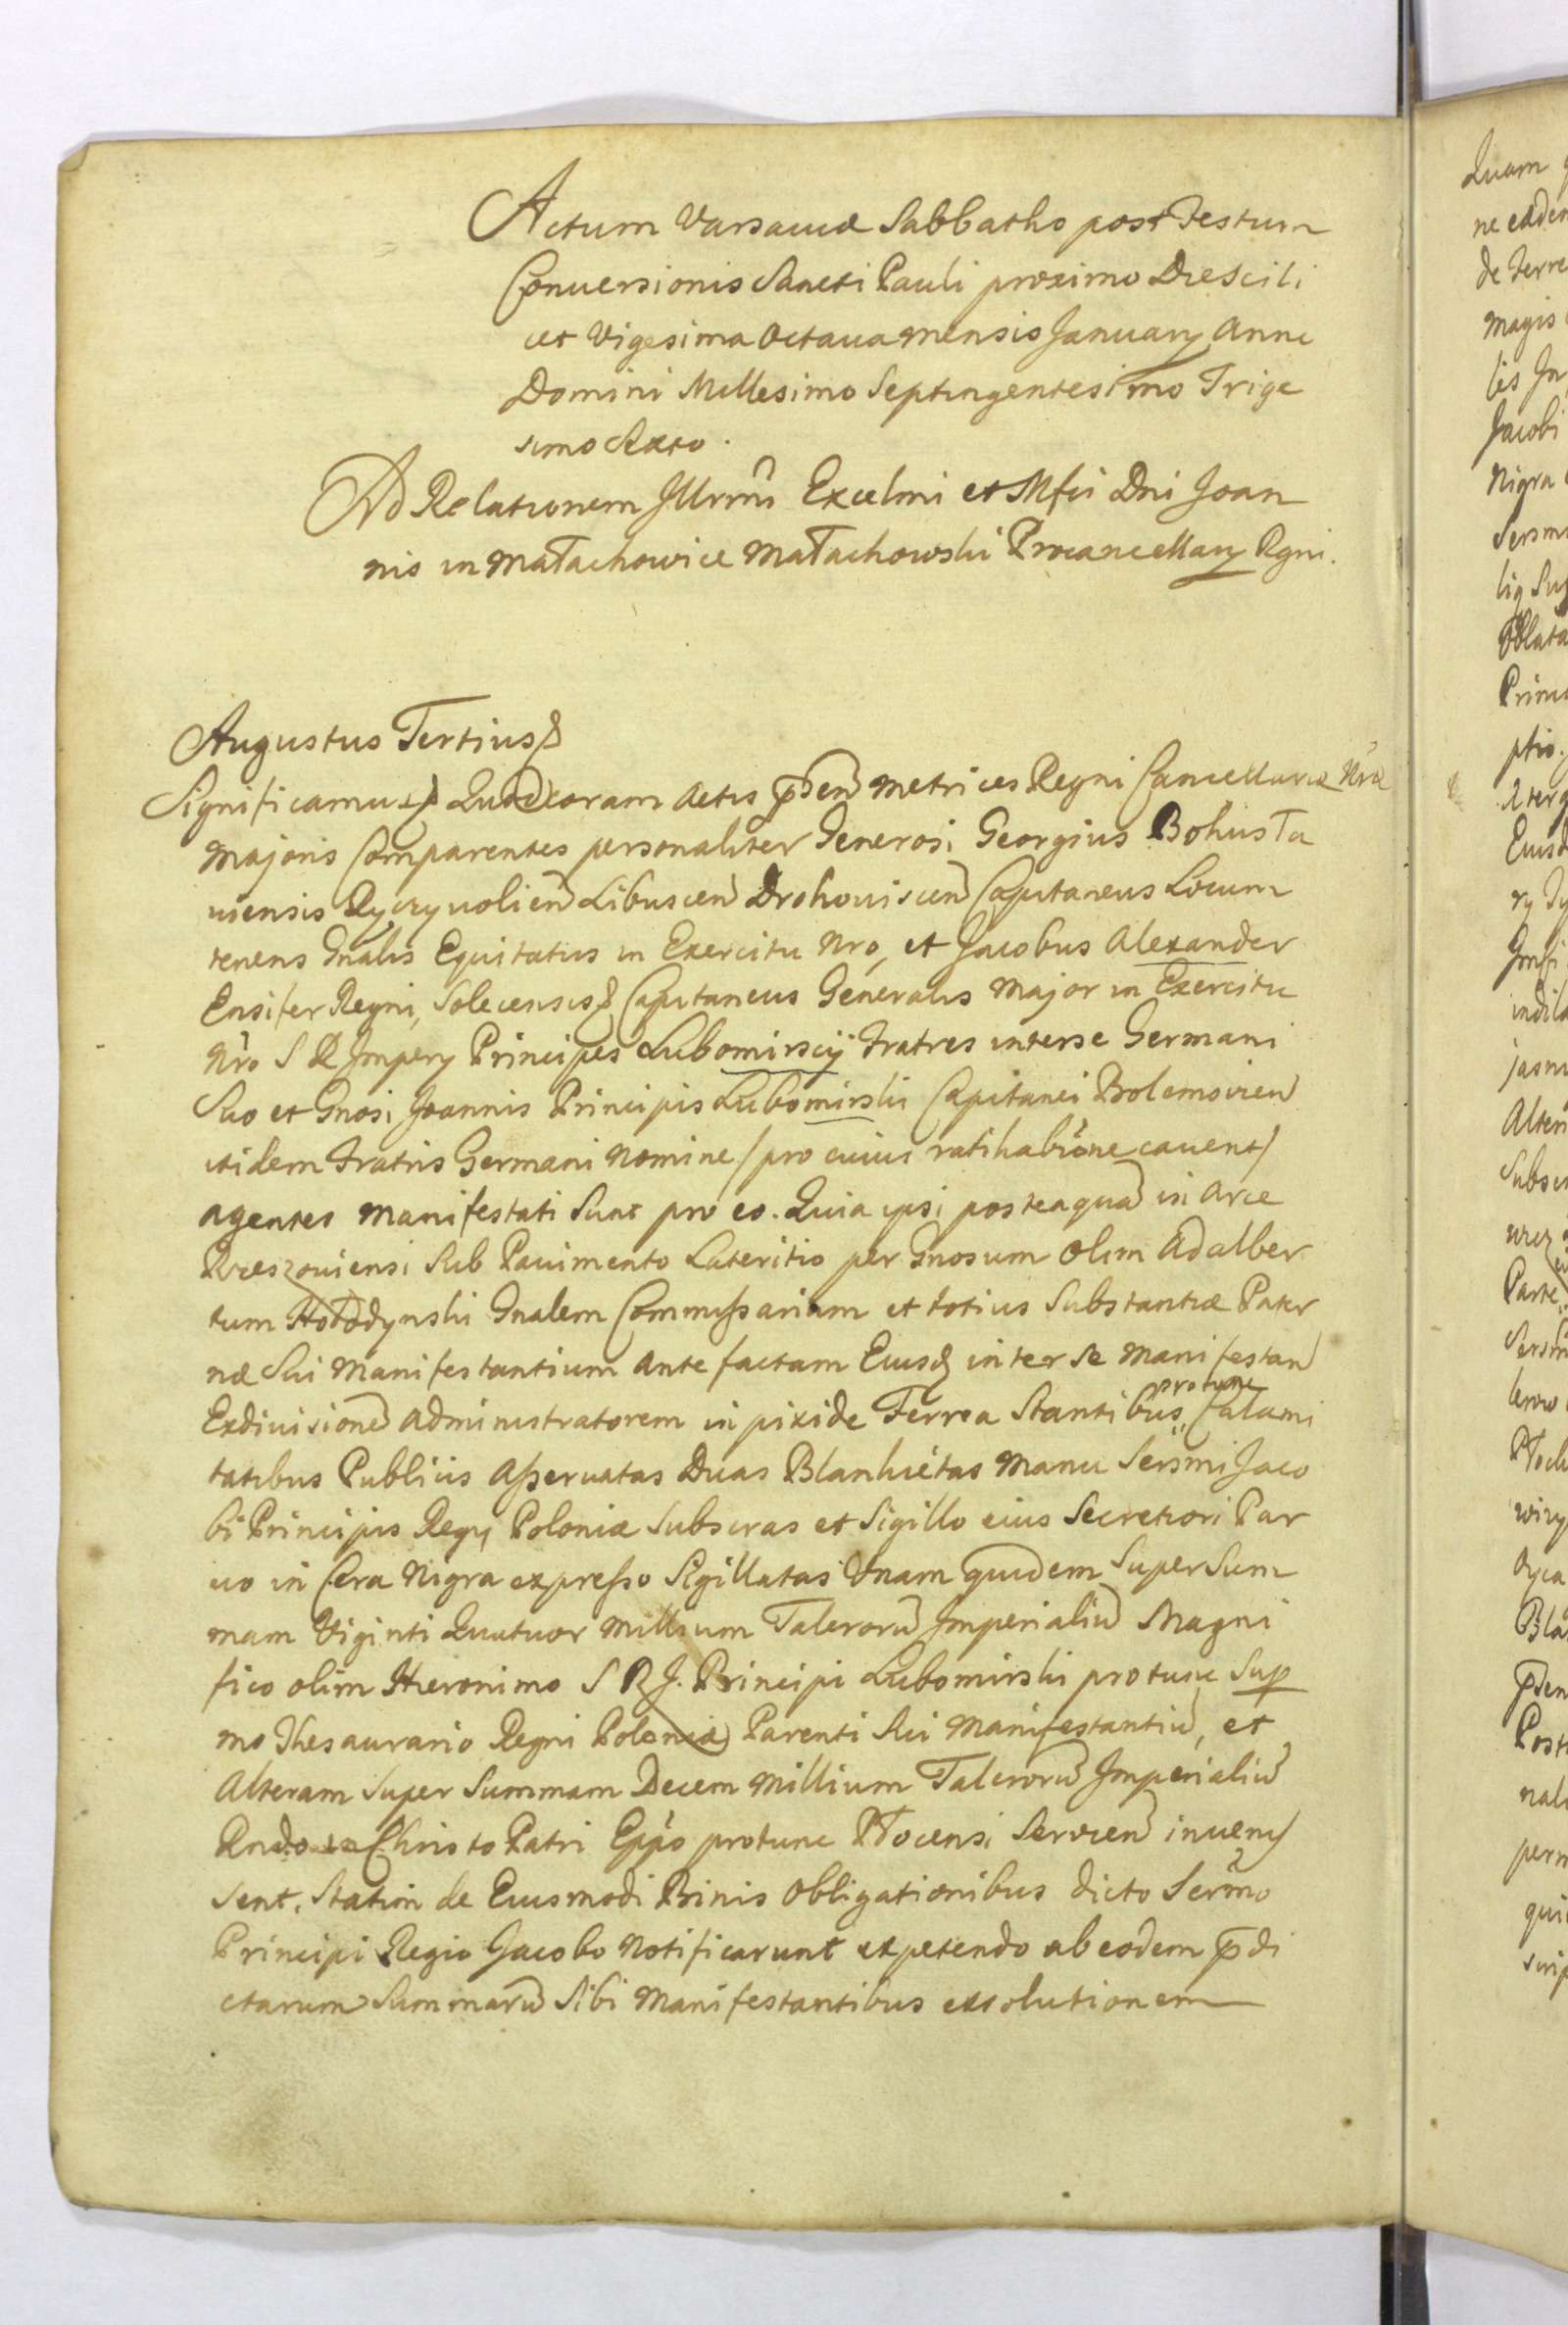 Actum Varsaviæ Sabbatho post Festum
Conversionis Sancti Pauli proximo Die Scili
cet Vigesima Octava mensis January Anno
Domini Millesimo Septingentesimo Trige
simo Sexto.
Ad Relationem Illrmi Excelmi et Mfci Dni Joan
nis in Małachowice Małachowski Procancellary Rgni.
Augustus Tertius
Significamus Quod coram Actis pñsen Metrices Regni Cancellariæ Nræ
Majoris Comparentes personaliter Generosi Georgius Bohusta
viensis Ryczyvolien Libuscen Drohoviscen Capitaneus Locum
tenens Gnalis Equitatus in Exercitu Nro, et Jacobus Alexander
Ensifer Regni, Solecensis Capitaneus Generalis Major in Exercitu
Nro S R Impery Principes Lubomirscy Fratres inter se Germani
Suo et Gnosi Joannis Principis Lubomirski Capitanei Bolemovien
itidem Fratris Germani Nomine / pro cuius ratihabitione cavent /
agentes manifestati Sunt pro eo. Quia ipsi posteaqua in Arce
Rzeszoviensi Sub Pavimento Lateritio per Gnosum Olim Adalber
tum Hołodynski Gnalem Commissarium et totius Substantiæ Pater
næ Sui Manifestantium Ante factam Eiusd inter se Manifestan
Exdivisione Administratorem in pixide Ferrea Stantibus protunc Calami
tatibus Publicis Asservatas Duas Blankietas Manu Serssmi Jaco
bi Principis Regy Poloniæ Subscras et Sigillo eius Secretiori Par
vo in Cera Nigra expresso Sigillatas Unam quidem Super Sum
mam Viginti Quatuor Millium Taleroru Imperialiu Magni
fico olim Hieronimo S R J. Principi Lubomirski protunc Sup
mo Thesaurario Regni Poloniæ Parenti Sui Manifestantiu, et
Alteram Super Summam Decem Millium Taleroru Imperialiu
Rndo in Christo Patri Eppo protunc Płocensi Servien invenis
sent. Statim de Eiusmodi Binis Obligationibus dicto Sermo
Principi Regio Jacobo Notificarunt expetendo ab eodem p̄di
ctarum Summaru Sibi Manifestantibus exsolutionem